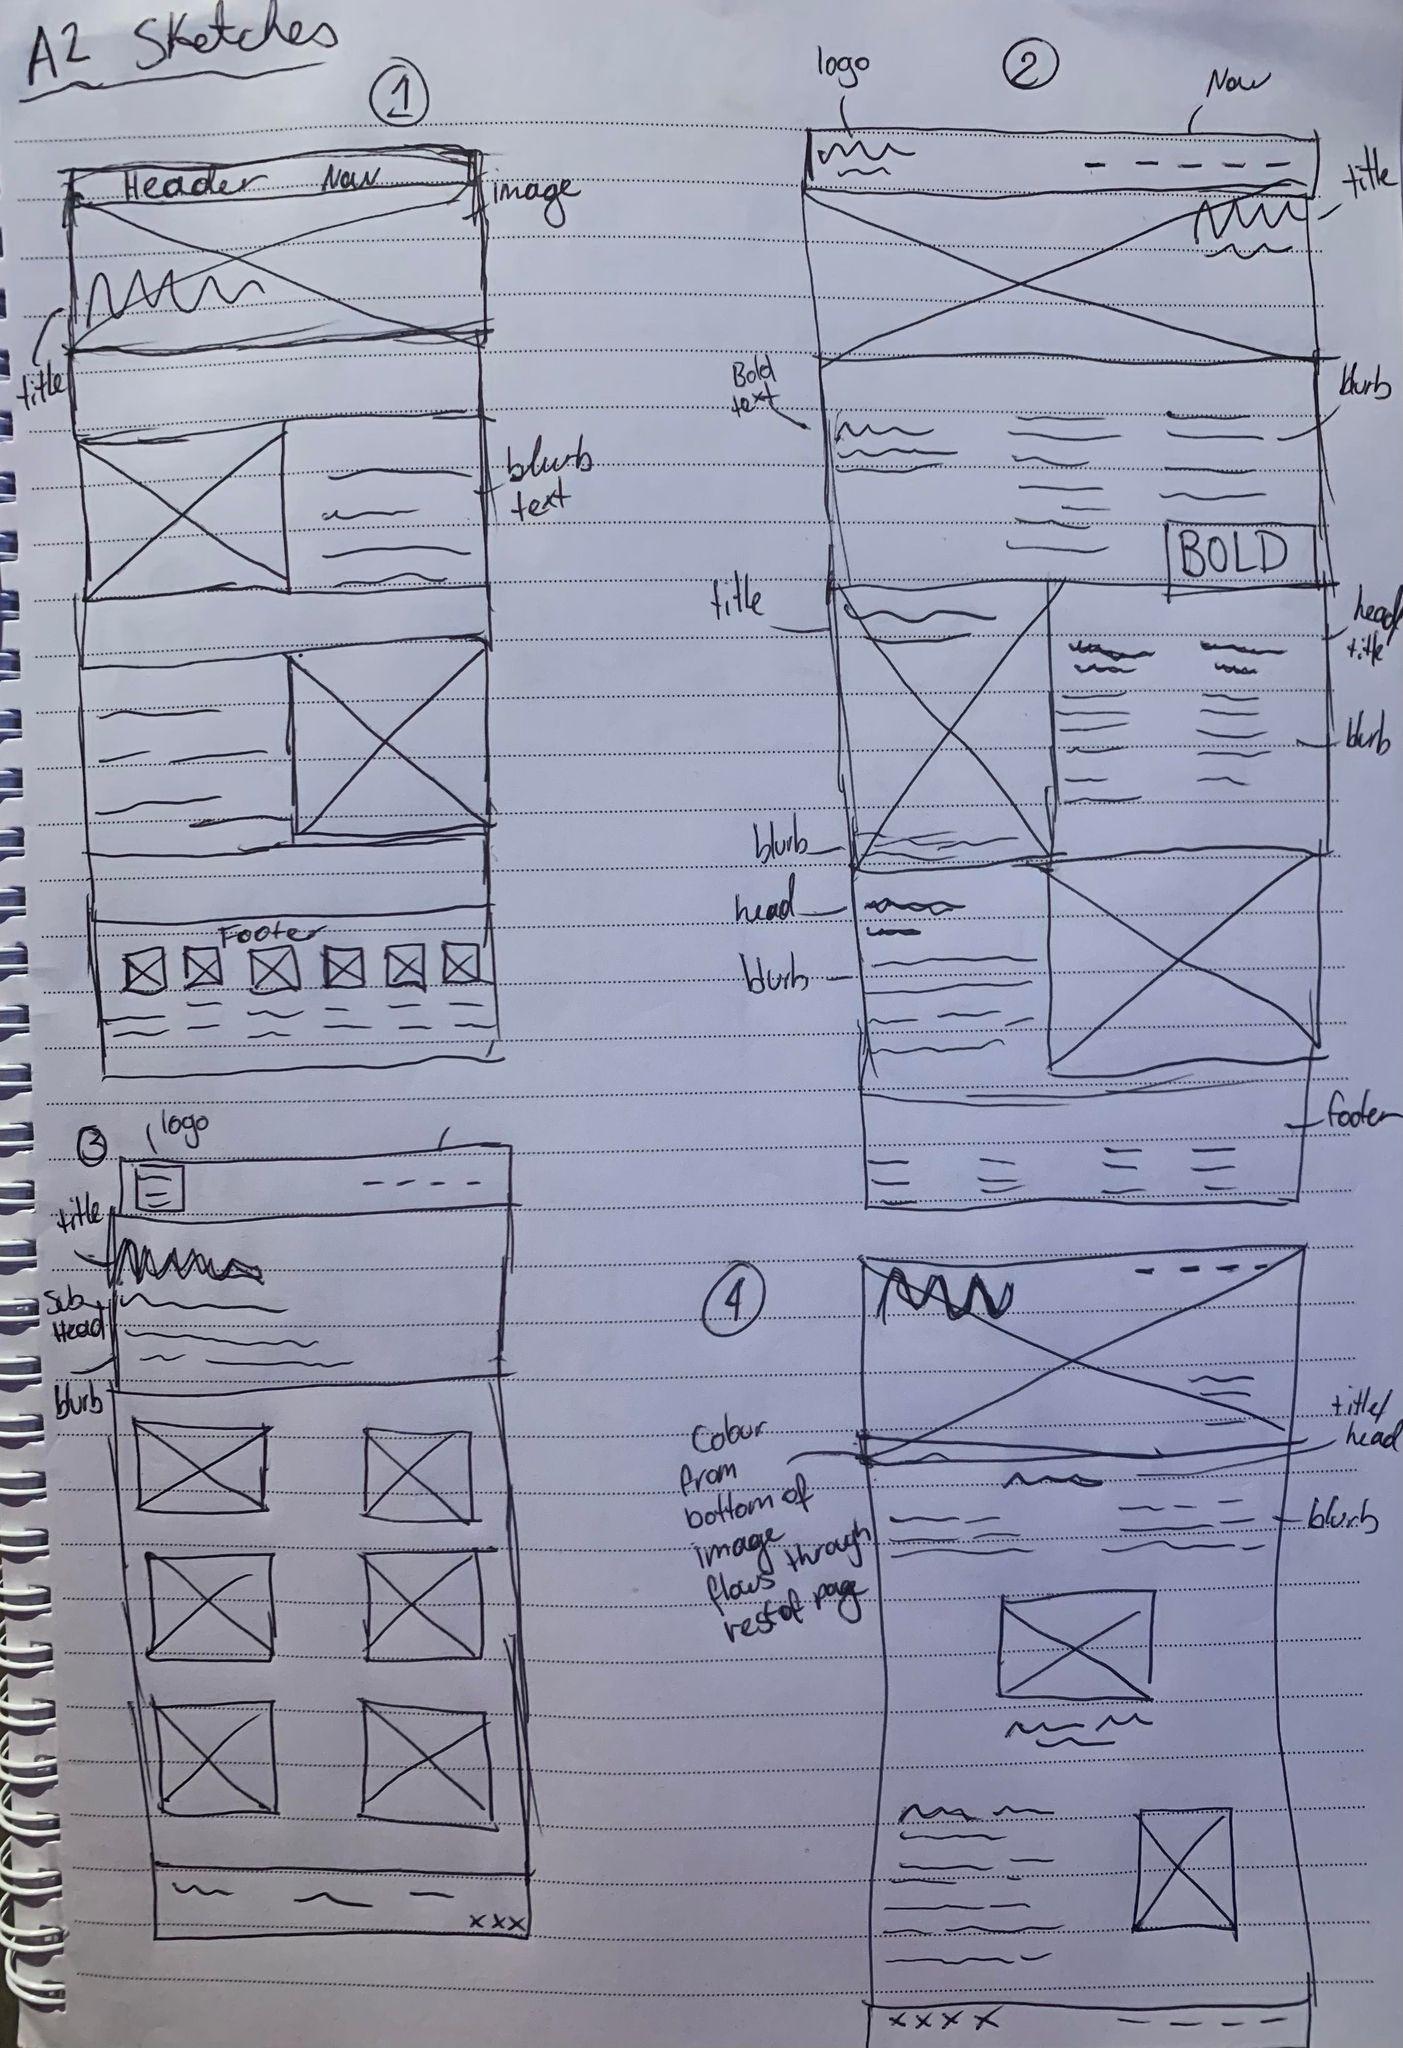 A2 Sketches
1
Header Nav
image
title
blurb
text
Footer
2
logo
Nav
title
Bold
text
blurb
BOLD
title
head
title
blurb
blurb
head
blurb
footer
3
logo
title
Sub
Head
blurb
xxx
4
Colour
from
bottom of
image
flows through
rest of page
title/
head
blurb
xxxx